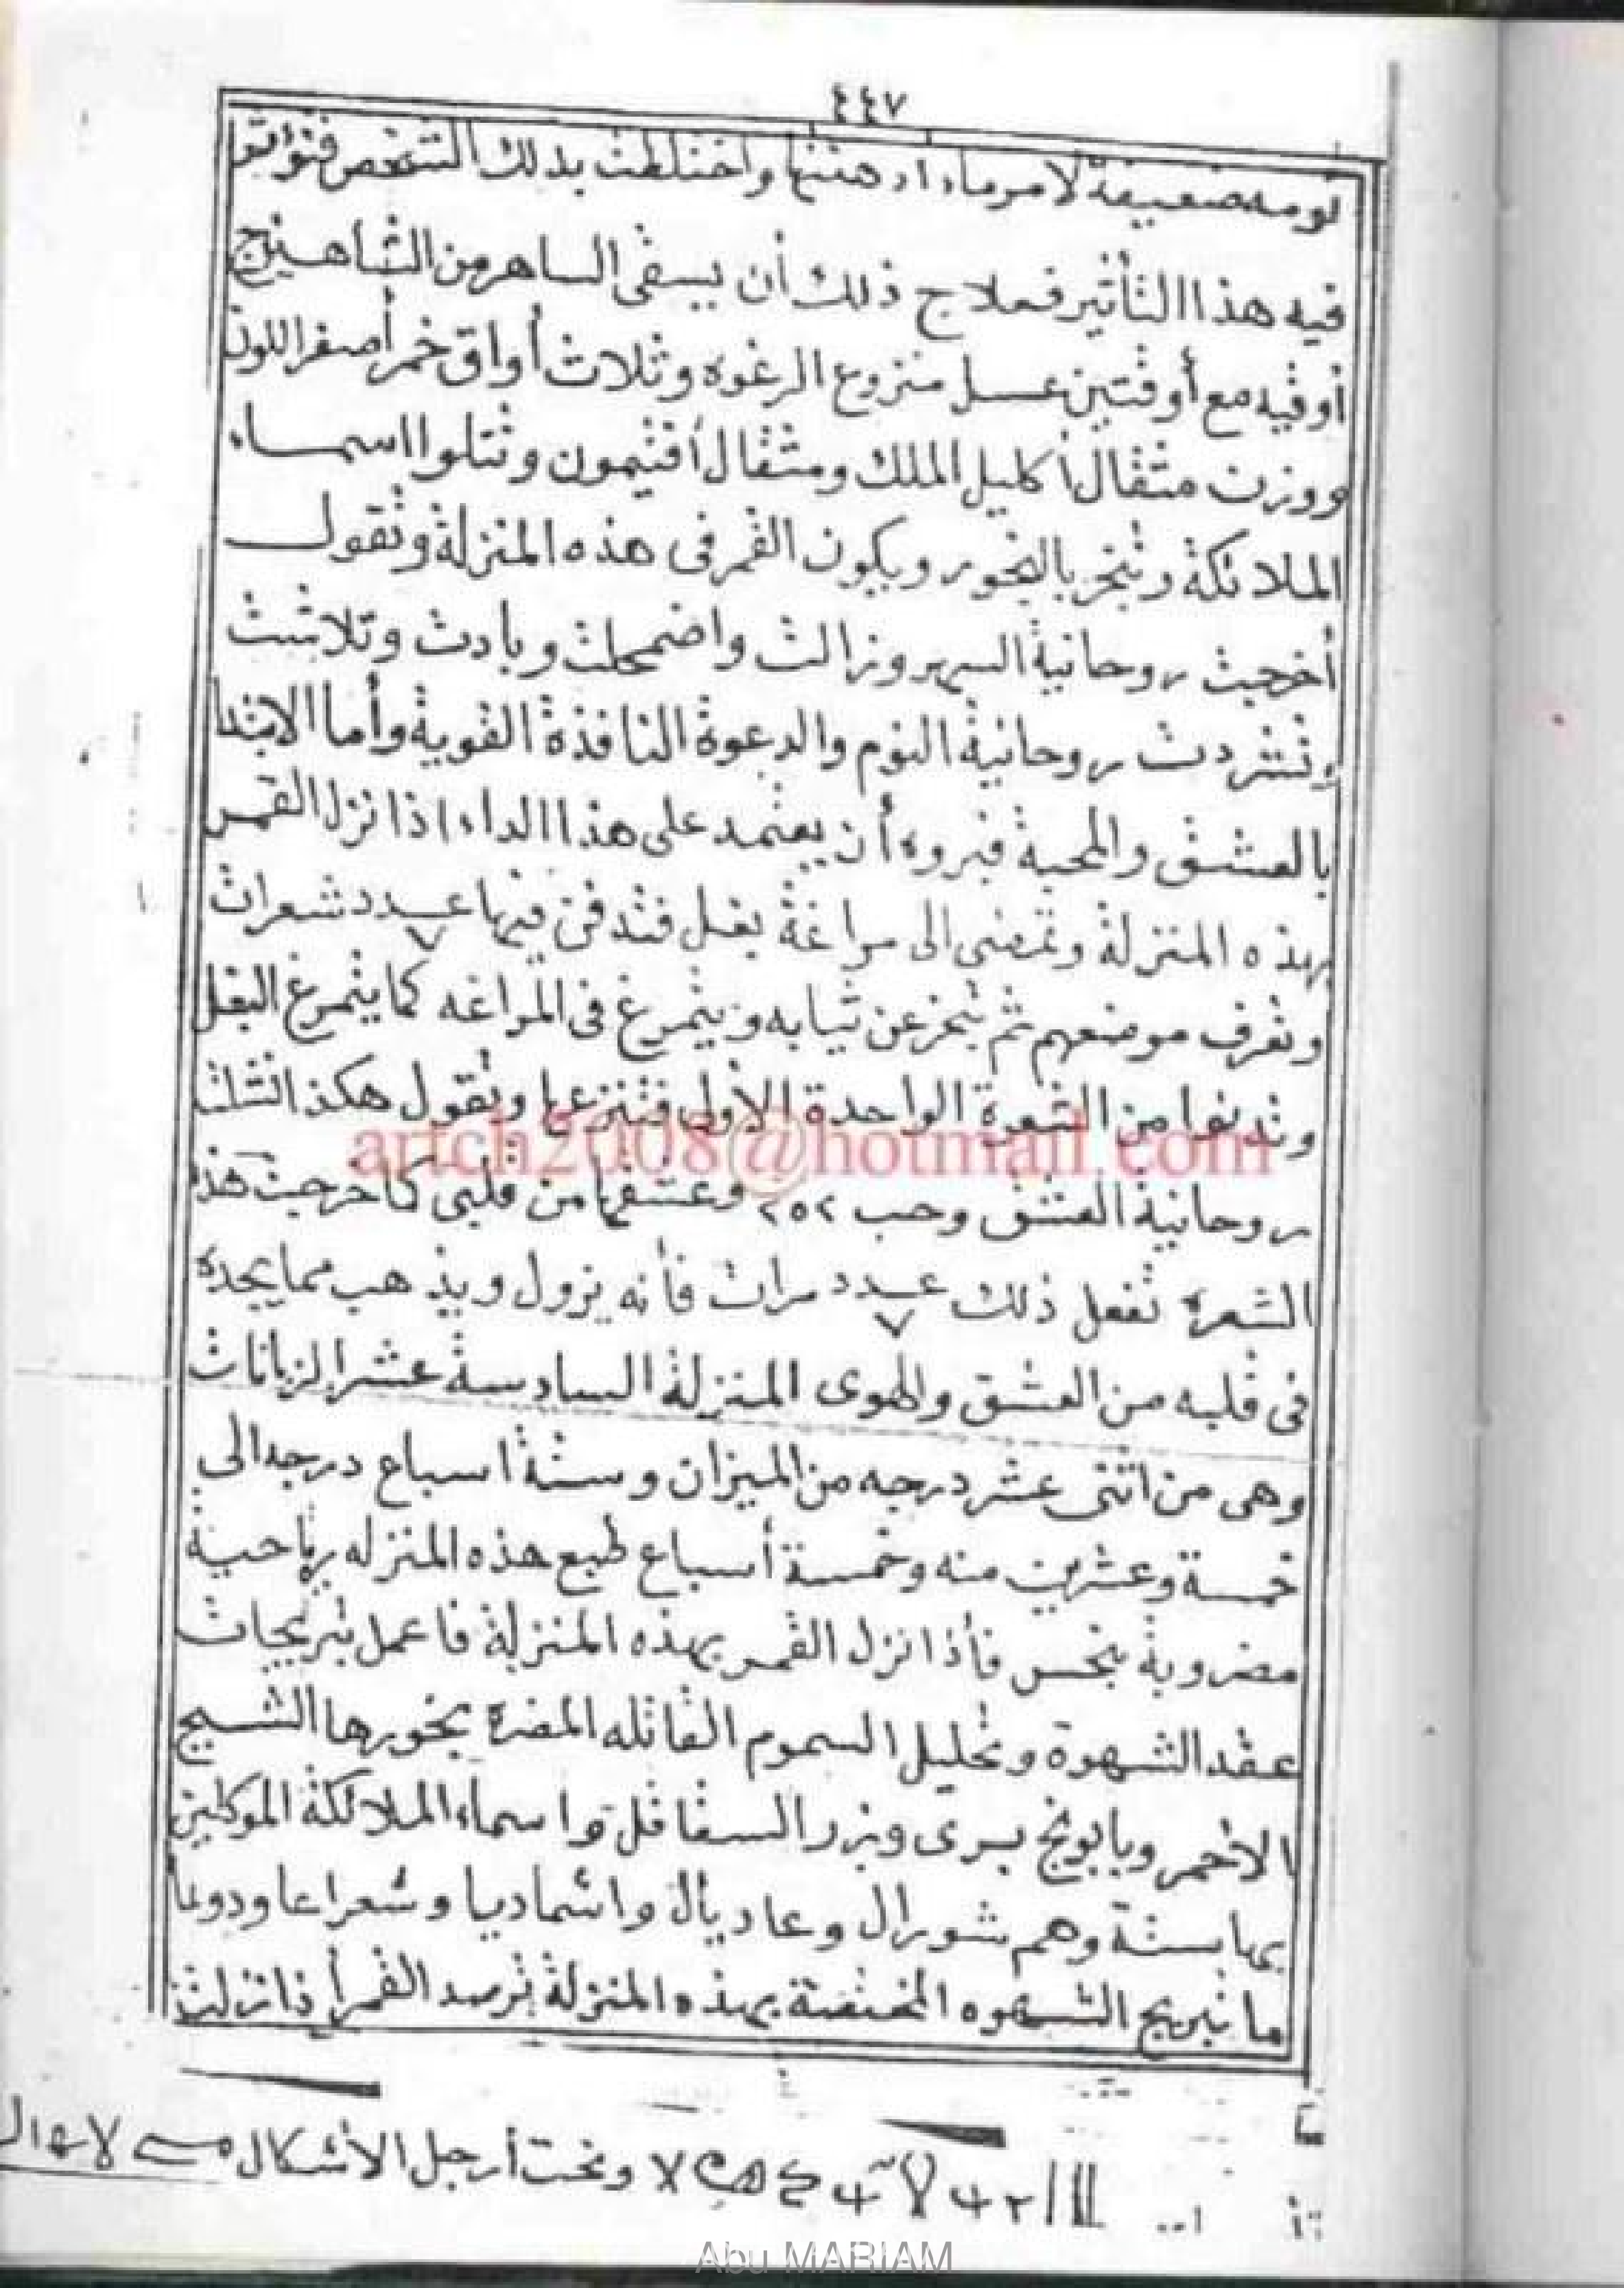 ٤٤٧
نومه ضعيفة لامرما، ادهنتها واختلطت بذلك الشخص فتواتر
فيه هذا التأثير فعلاج ذلك أن يسقى الساهر من الشاهينج
أوقيه مع أوقتين عسل منزوع الرغوه وثلاث أواق خمر أصفر اللون
ووزن مثقال أكليل الملك ومثقال أفتيمون وتتلوا اسماء
الملائكة وتبخر بالبخور ويكون القمر فى هذه المنزلة وتقول
أخرجت روحانية السهر وزالت واضمحلت وبادت وتلاشت
وتشردت روحانية النوم والدعوة النافذة القوية وأما الابتدا
بالعشق والمحبة فبروه أن يعتمد على هذا الداء اذا نزل القمر
بهذه المنزلة وتمضى الى مراغة بغل فتدفن فيها عدد ٧ شعرات
وتعرف موضعهم ثم يتجرعن ثيابه ويتمرغ فى المراغه كما يتمرغ البغل
وتدنوا من الشعرة الواحدة الأولى فتنزعها وتقول هكذا انشلت
artch2008@hotmail.com
روحانية العشق وحب ٢٥٢ وعشقها من قلبى كما خرجت هذ
الشعره تفعل ذلك عدد ٧ مرات فأنه يزول ويذهب مما يجده
فى قلبه من العشق والهوى المنزلة السادسة عشر الزبانات
وهى من اثنى عشر درجه من الميزان وستة اسباع درجه الى
خمسة وعشرين منه وخمسة أسباع طبع هذه المنزله رياحية
مضروبة بنحس فأذا نزل القمر بهذه المنزلة فاعمل بتريجات
عقد الشهوة وتحليل السموم القاتله المضره بخورها الشيح
الاحمر وبابونج برى وبزر السفافل واسماء الملائكة الموكلين
بها ستة وهم شورال وعاديال واشماديا وشعراعا ودوعا
ما نبريج الشهوه المختصة بهذه المنزلة ترصد القمر أذا نزلت
وتحت أرجل الأشكال
Abu MARIAM